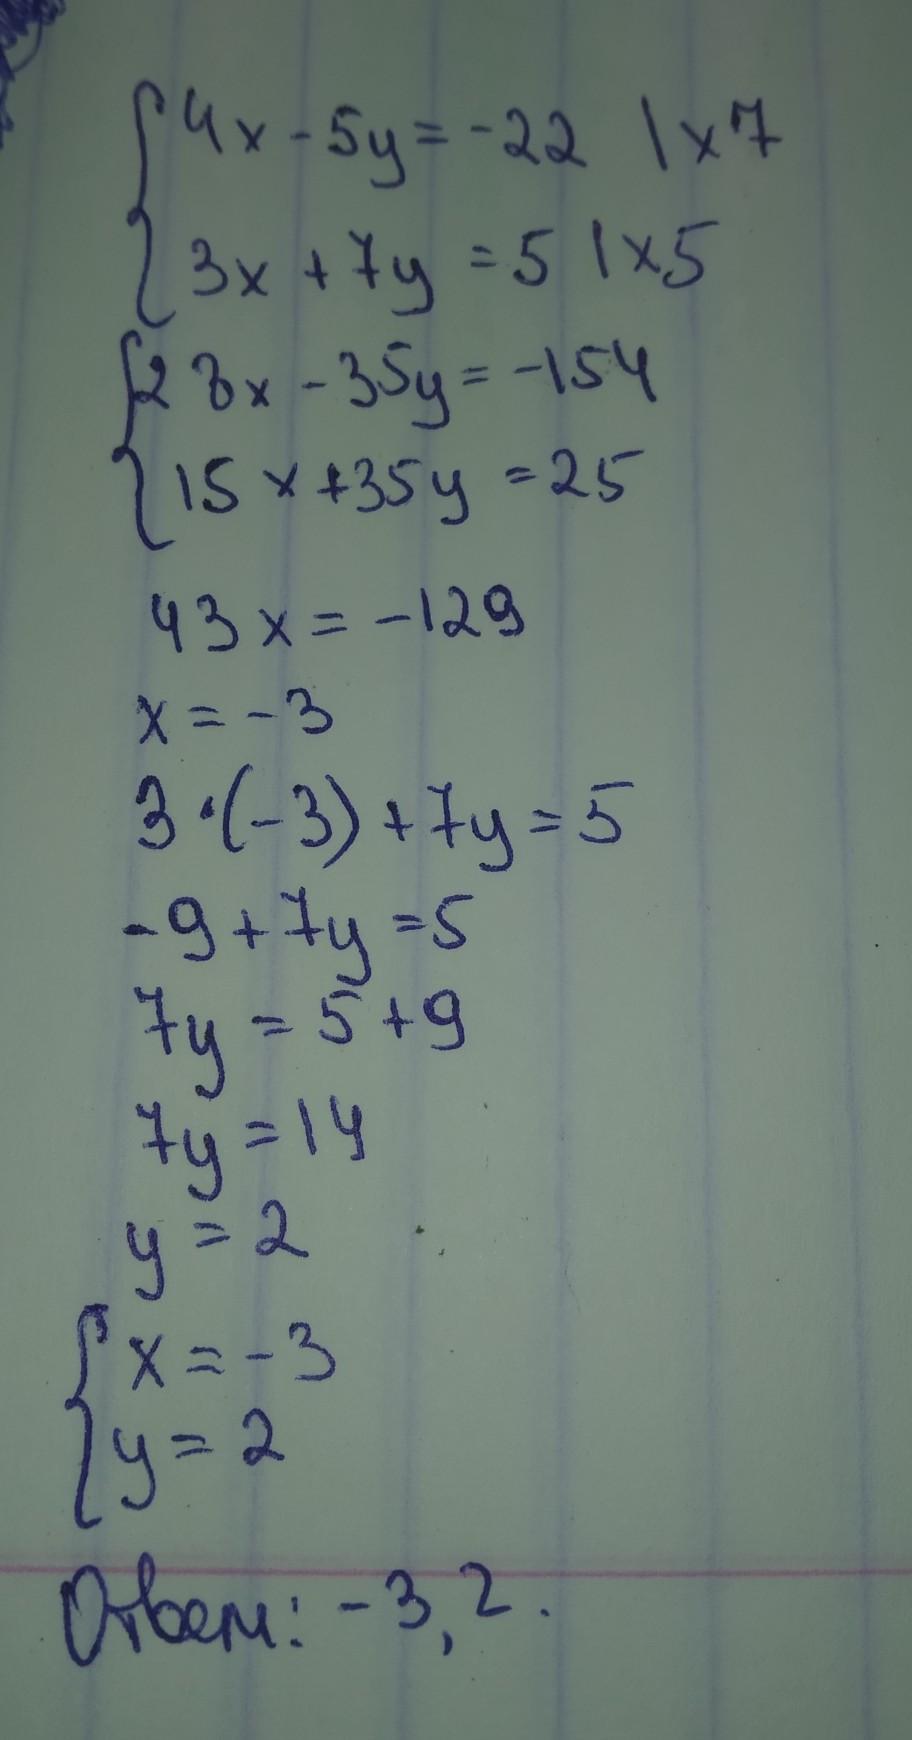 4x - 5y = -22 | x 7
3x + 7y = 5 | x 5
28x - 35y = -154
15x + 35y = 25
43x = -129
x = -3
3 · (-3) + 7y = 5
-9 + 7y = 5
7y = 5 + 9
7y = 14
y = 2
x = -3
y = 2
Ответ: -3, 2.